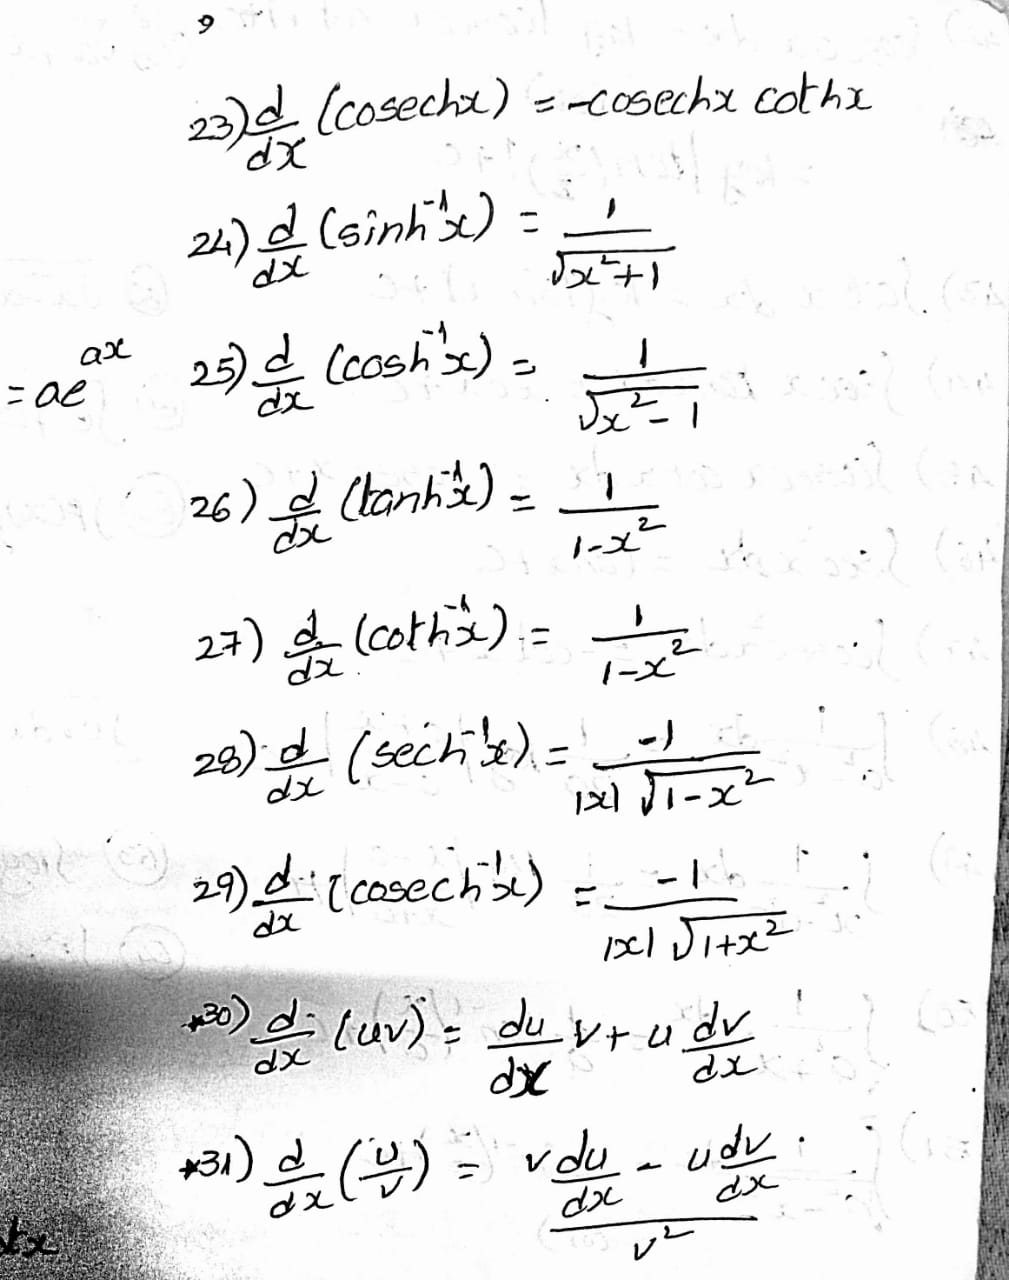 9
23) d/dx (cosechx) = -cosechx cothx
24) d/dx (sinh⁻¹x) = 1/√(x²+1)
= ae^ax
25) d/dx (cosh⁻¹x) = 1/√(x²-1)
26) d/dx (tanh⁻¹x) = 1/(1-x²)
27) d/dx (coth⁻¹x) = 1/(1-x²)
28) d/dx (sech⁻¹x) = -1/(|x| √(1-x²))
29) d/dx (cosech⁻¹x) = -1/(|x| √(1+x²))
*30) d/dx (uv) = du/dx v + u dv/dx
*31) d/dx (u/v) = (v du/dx - u dv/dx)/v²